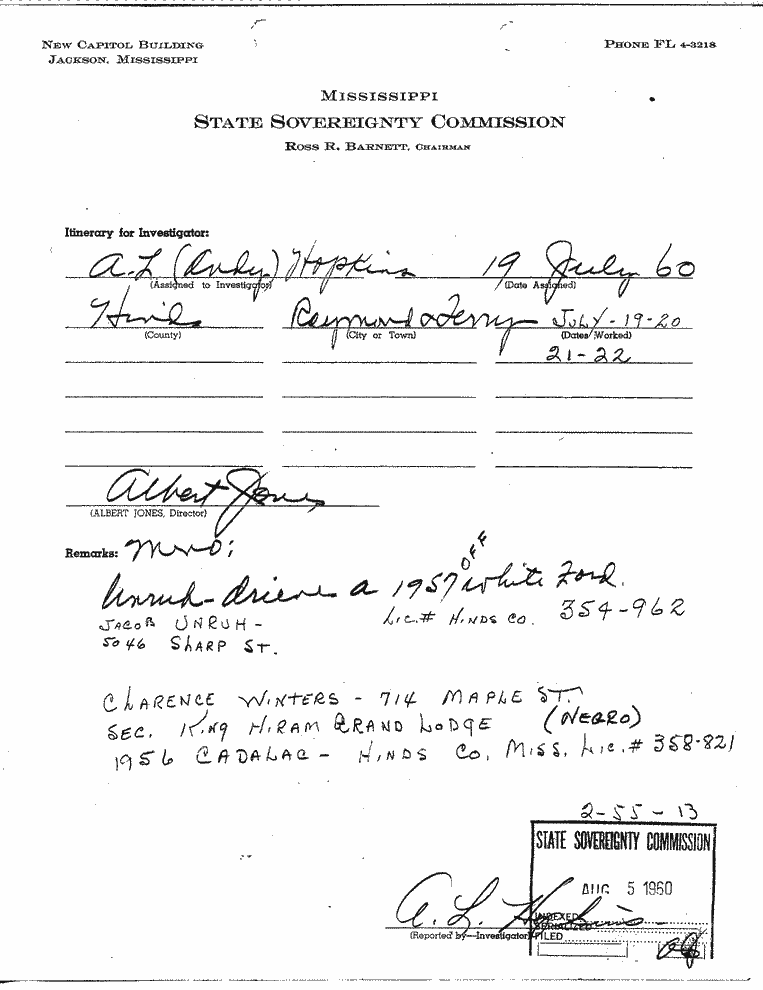 NEW CAPITOL BUILDING
JACKSON, MISSISSIPPI
PHONE FL 4-3218
MISSISSIPPI
STATE SOVEREIGNTY COMMISSION
ROSS R. BARNETT, CHAIRMAN
Itinerary for Investigator:
A.L (Andy) Hopkins 19 July 60
(Assigned to Investigator) (Date Assigned)
Hinds Raymond & Terry JULY-19-20
(County) (City or Town) (Dates Worked)
21-22
Albert Jones
(ALBERT JONES, Director)
Remarks:
OFF
Unruh- drives a 1957 white Ford.
JACOB UNRUH - Lic.# HINDS CO. 354-962
5046 SHARP ST.
CLARENCE WINTERS - 714 MAPLE ST.
SEC. KING HIRAM GRAND LODGE (NEGRO)
1956 CADALAC - HINDS CO. MISS. Lic.# 358-821
2-55-13
STATE SOVEREIGNTY COMMISSION
AUG 5 1960
A. L. Hopkins
INDEXED
SERIALIZED
(Reported by—Investigator) FILED